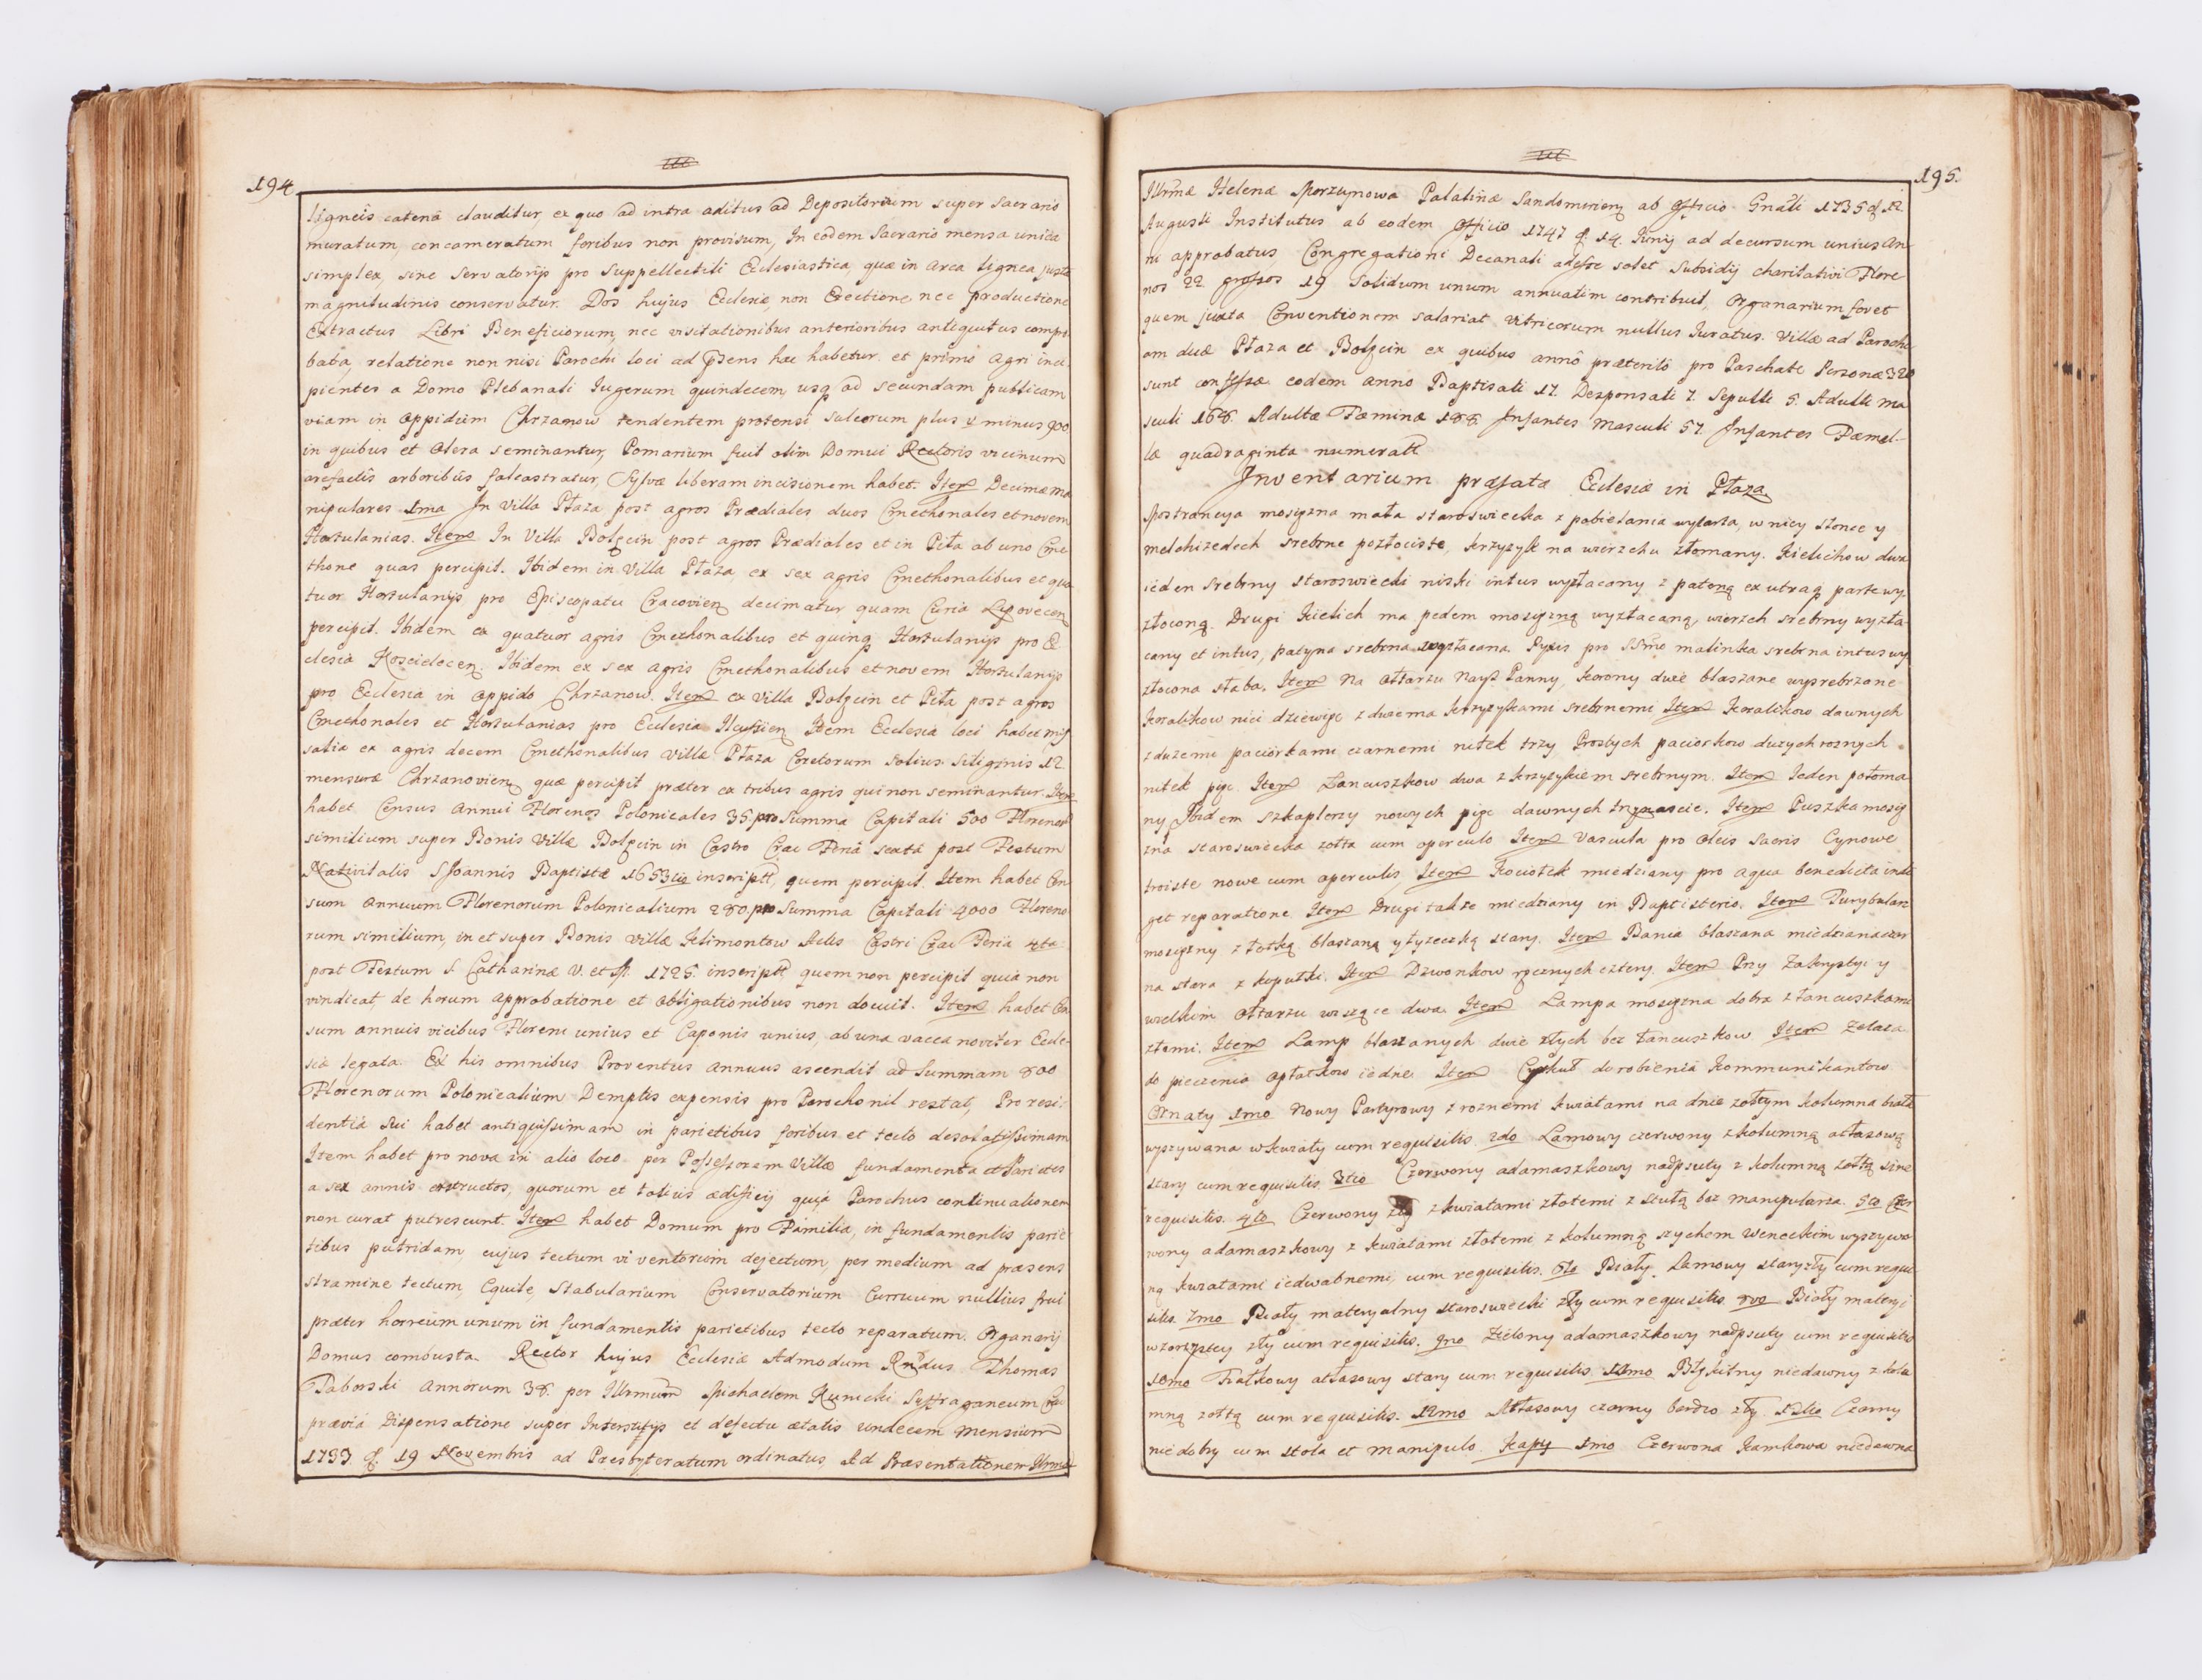 194
ligneis catena clauditur, ex quo ad intra aditus ad Depositorium super Sacrario
muratum, concameratum foribus non provisum, In eodem Sacrario mensa unica
simplex, sine servatorijs pro Suppellectili Ecclesiastica, quæ in arca lignea justæ
magnitudinis conservatur. Dos hujus Ecclesiæ, non Erectione, nec productione
Extractus Libri Beneficiorum, nec visitationibus anterioribus antiquitus compro
bata, relatione non nisi Parochi loci ad pñsens hæc habetur. et primo agri inci
pientes a Domo Plebanali Jugerum quindecem, usq ad secundam publicam
viam in oppidum Chrzanow tendentem protensi sulcorum plus v minus 900
in quibus et olera seminantur, Pomarium fuit olim Domui Rectoris vicinum
arefactis arboribus falcastratur, Sylvæ liberam incisionem habet. Item Decimæ ma
nipulares 1ma In Villa Płaza post agros Prædiales duos Cmethonales et novem
Hortulanias. Item In Villa Bolęcin post agros Prædiales et in Piła ab uno Cme
thone quas percipit. Ibidem in Villa Płaza, ex sex agris Cmethonalibus et qua
tuor Hortulanijs pro Episcopatu Cracovien decimatur quam Curia Lipovecen
percipit. Ibidem ex quatuor agris Cmethonalibus et quinq Hortulanijs pro Ec
clesia Koscielecen. Ibidem ex sex agris Cmethonalibus et novem Hortulanijs
pro Ecclesia in oppido Chrzanow. Item ex Villa Bolęcin et Piła post agros
Cmethonales et Hortulanias pro Ecclesia Ilcussien Item Ecclesia loci habet mis
salia ex agris decem Cmethonalibus Villæ Płaza Coretorum solius siliginis 12
mensuræ Chrzanovien, quæ percipit præter ex tribus agris qui non seminantur. Item
habet Census annui Florenos Polonicales 35. pro Summa Capitali 500 Florenor
similium super Bonis Villæ Bolęcin in Castro Crac Feria sexta post Festum
Nativitatis S Joannis Baptistæ 1653tio inscript, quem percipit. Item habet Cen
sum annuum Florenorum Polonicalium 280. pro Summa Capitali 4000 Floreno
rum similium, in et super Bonis Villæ Klimontow Actis Castri Crac Feria 4ta
post Festum S. Catharinæ V. et M. 1725. inscript quem non percipit quia non
vindicat, de horum approbatione et obligationibus non docuit. Item habet Cen
sum annuis vicibus Floreni unius et Caponis unius, ab una vacca noviter Eccle-
siæ legata. Ex his omnibus Proventus annuus ascendit ad Summam 800
Florenorum Polonicalium Demptis expensis pro Parocho nil restat, Pro resi-
dentia sui habet antiquissimam in parietibus foribus et tecto desolatissimam
Item habet pro nova in alio loco per Possessorem Villæ fundamenta et Parietes
a sex annis exstructos, quorum et totius ædificij quia Parochus continuationem
non curat putrescunt. Item habet Domum pro Familia, in fundamentis parie
tibus putridam, cujus tectum vi ventorum dejectum, per medium ad præsens
stramine tectum, Equile, Stabularium Conservatorium Curruum nullius frui
præter horreum unum in fundamentis parietibus tecto reparatum. Organarij
Domus combusta. Rector hujus Ecclesiæ Admodum Rndus Thomas
Taborski annorum 38. per Illrmum Michaelem Kunicki Suffraganeum Crac
prævia Dispensatione super Interstitijs et defectu ætatis undecem mensium
1733. d. 19 Novembris ad Presbyteratum ordinatus, Ad Præsentationem Illrmæ
195.
Illrmæ Helenæ Morzynowa Palatinæ Sandomirien ab officio Gnãli 1735 d 12
Augusti Institutus ab eodem Officio 1747 d. 14. Junij ad decursum unius an
ni approbatus, Congregationi Decanali adesse solet, Subsidij charitativi Flore
nos 22 grossos 19 Solidum unum annuatim contribuit, Organarium fovet
quem juxta Conventionem salariat Vitricorum nullus Juratus. Villæ ad Parochi
am duæ Płaza et Bolęcin ex quibus anno præterito pro Paschate Personæ 320
sunt confessæ eodem anno Baptisati 17. Desponsati 7. Sepulti 5. Adulti ma
sculi 168. Adultæ Fæminæ 188. Infantes Masculi 57. Infantes Fæmel-
læ quadraginta numerati
Inventarium præfatæ Ecclesiæ in Płaza
Mostrancya mosięzna mała staroswiecka z pobielania wytarta, w niey słonce y
melchizedech srebrne pozłociste, krzyzyk na wierzchu złomany. Kielichow dwa
ieden srebrny staroswiecki niski intus wyzłacany z pateną ex utraq parte wy
złoconą. Drugi Kielich ma pedem mosięzną wyzłacaną, wierzch srebrny wyzła-
cany et intus, patyna srebrna wyzłacana Pyxis pro SSmo malinka srebrna intus wy
złocona słaba. Item Na ołtarzu Nayś Panny, Korony dwie blaszane wysrebrzane
Koralikow nici dziewięc z dwiema krzyzykami srebrnemi Item Koralikow dawnych
z duzemi paciorkami czarnemi nitek trzy Prostych paciorkow duzych roznych
nitek pięc. Item Łancuszkow dwa z krzyzykiem srebrnym. Item Ieden połoma
ny Ibidem szkaplerzy nowych pięc dawnych trzynascie. Item Puszka mosię
zna staroswiecka zołta cum operculo Item Vascula pro oleis Sacris Cynowe
troiste nowe cum operculis, Item Kociołek miedziany pro aqua benedicta indi
get reparatione. Item Drugi takze miedziany in Baptisterio. Item Turybularz
mosięzny z łotką blaszaną y łyzeczką stary. Item Bania blaszana miedziana czar
na stara z koputki. Item Dzwonkow ręcznych cztery. Item Przy Zakrystyi y
wielkim ołtarzu wiszące dwa. Item Lampa mosięzna dobra z łancuszkami
złemi. Item Lamp blaszanych dwie złych bez łancuszkow Item Zelaza
do pieczenia opłatkow iedne. Item Cyrkuł do robienia Kommunikantow
Ornaty 1mo Nowy Partyrowy z roznemi kwiatami na dnie zołtym kolumna biała
wyszywana w kwiaty cum requisitis 2do Lamowy czerwony z kolumną atłasową
stary cum requisitis. 3tio Czerwony adamaszkowy nadpsuty z kolumną zołtą sine
requisitis. 4to Czerwony zły z kwiatami złotemi z stułą bez manipularza. 5to Czer
wony adamaszkowy z kwiatami złotemi z kolumną szychem weneckim wyszywa
ną kwiatami iedwabnemi, cum requisitis. 6to Biały Lamowy stary zły cum requi
sitis. 7mo Biały materyalny staroswiecki zły cum requisitis. 8vo Biały materyi
wzorzystey zły cum requisitis. 9no Zielony adamaszkowy nadpsuty cum requisitis
10mo Fiałkowy atłasowy stary cum requisitis 11mo Błękitny niedawny z kolu
mną zołtą cum requisitis. 12mo Atłasowy czarny bardzo zły 13tio Czarny
niedobry cum stola et manipulo. Kapy 1mo Czerwona kamkowa niedawna